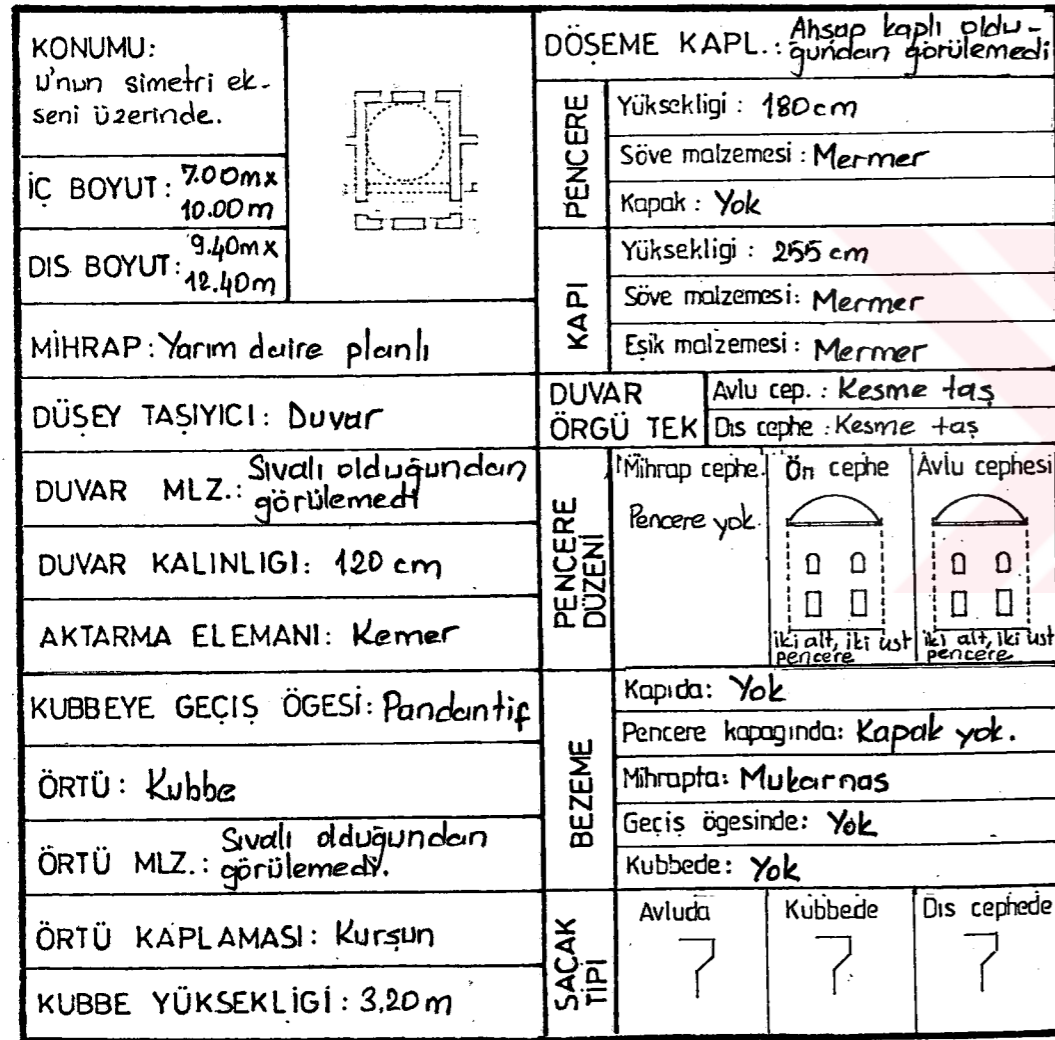 KONUMU:
U'nun simetri ek-
seni üzerinde.
İÇ BOYUT: 7.00mx
10.00m
DIS BOYUT: 9.40mx
12.40m
MİHRAP: Yarım daire planlı
DÜŞEY TAŞIYICI: Duvar
DUVAR MLZ.: Sıvalı olduğundan
görülemedi
DUVAR KALINLIGI: 120 cm
AKTARMA ELEMANI: Kemer
KUBBEYE GEÇİŞ ÖGESİ: Pandantif
ÖRTÜ: Kubbe
ÖRTÜ MLZ.: Sıvalı olduğundan
görülemedi.
ÖRTÜ KAPLAMASI: Kurşun
KUBBE YÜKSEKLİGİ: 3,20 m
DÖŞEME KAPL.: Ahşap kaplı oldu-
ğundan görülemedi
PENCERE
Yüksekligi: 180 cm
Söve malzemesi: Mermer
Kapak: Yok
KAPI
Yüksekligi: 255 cm
Söve malzemesi: Mermer
Eşik malzemesi: Mermer
DUVAR
ÖRGÜ TEK
Avlu cep.: Kesme taş
Dıs cephe: Kesme taş
PENCERE
DÜZENİ
Mihrap cephe.
Pencere yok.
Ön cephe
iki alt, iki üst
pencere
Avlu cephesi
iki alt, iki üst
pencere
BEZEME
Kapıda: Yok
Pencere kapagında: Kapak yok.
Mihrapta: Mukarnas
Geçiş ögesinde: Yok
Kubbede: Yok
SAÇAK
TİPİ
Avluda
Kubbede
Dıs cephede